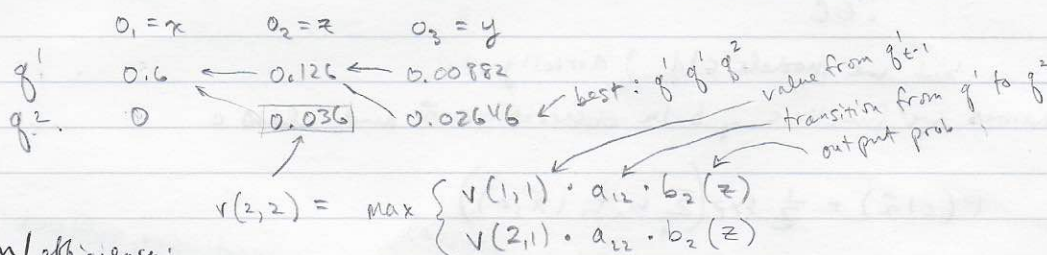 o₁ = x o₂ = z o₃ = y
q¹ 0.6 ← 0.126 ← 0.00882
q². 0 0.036 0.02646 ← best: q¹ q¹ q²
value from q¹t-1
transition from q¹ to q²
output prob "
v(2,2) = max { v(1,1) · a₁₂ · b₂(z)
v(2,1) · a₂₂ · b₂(z)